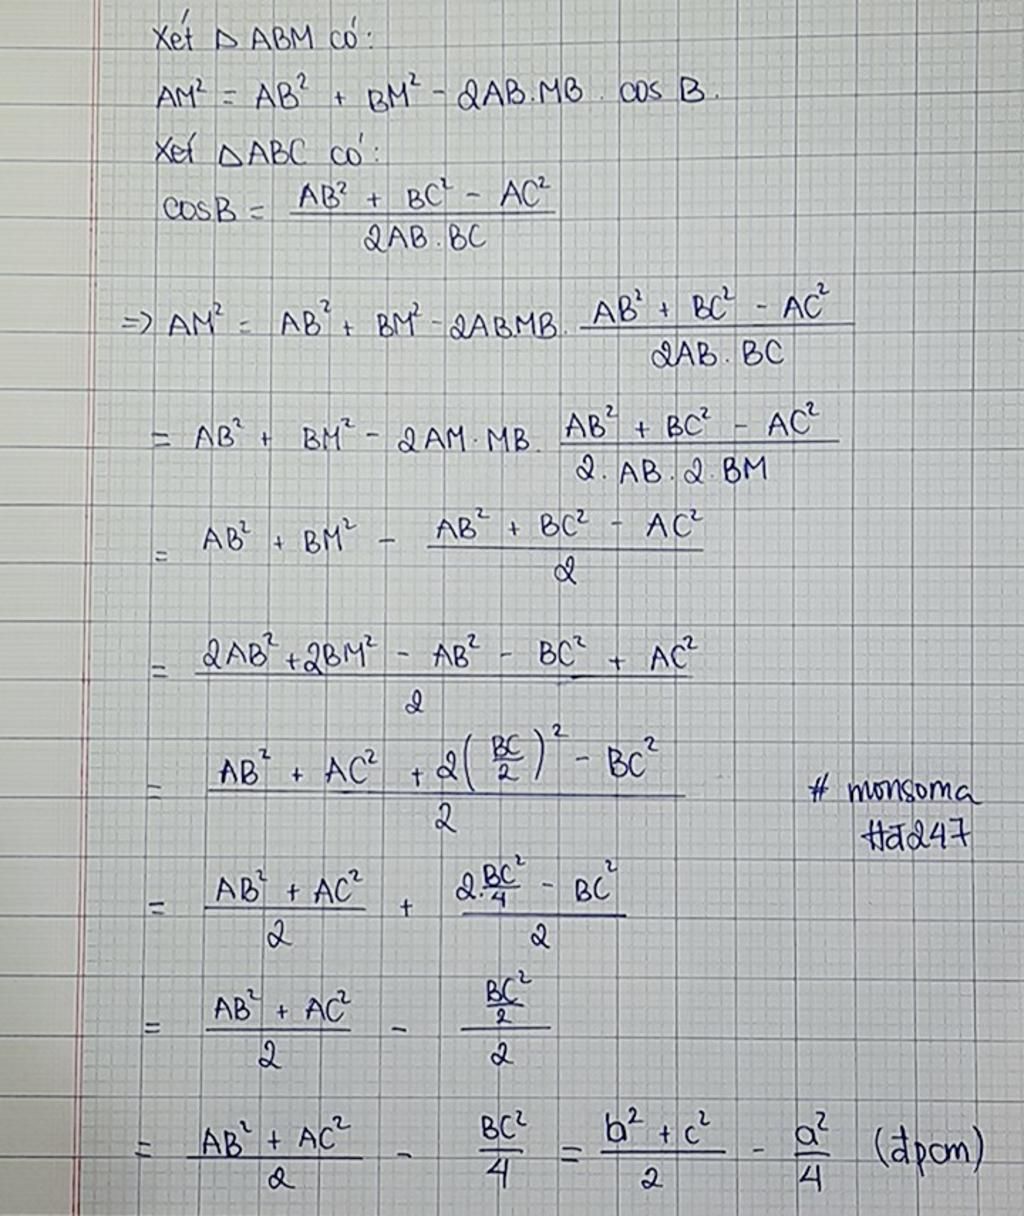 Xét △ABM có:
AM² = AB² + BM² - 2AB.MB . cos B.
Xét △ABC có:
cosB = (AB² + BC² - AC²)/(2AB.BC)
=> AM² = AB² + BM² - 2ABMB. (AB² + BC² - AC²)/(2AB.BC)
= AB² + BM² - 2AM.MB. (AB² + BC² - AC²)/(2.AB.2.BM)
= AB² + BM² - (AB² + BC² - AC²)/2
= (2AB² + 2BM² - AB² - BC² + AC²)/2
= (AB² + AC² + 2(BC/2)² - BC²)/2
# monsoma
= (AB² + AC²)/2 + (2.BC²/4 - BC²)/2
= (AB² + AC²)/2 - (BC²/2)/2
= (AB² + AC²)/2 - BC²/4 = (b² + c²)/2 - a²/4 (đpcm)